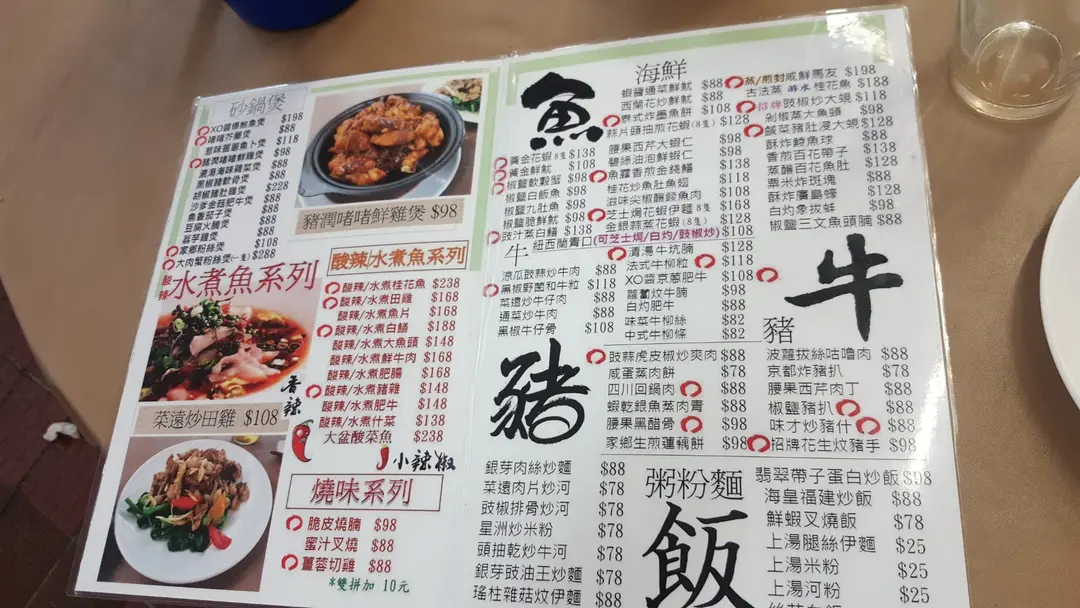 砂鍋煲
XO醬爆鮑魚煲 $198
啫啫芥蘭煲 $88
$118
豬潤啫啫鮮雞煲 $98
濃湯海味雞菜煲 $98
黑椒豬軟骨煲 $88
胡椒豬肚雞煲 $228
沙爹金菇肥牛煲 $88
魚香茄子煲 $88
豆腐火腩煲 $88
荔芋雞煲 $88
家鄉粉絲煲 $108
大肉蟹粉絲煲(一隻) $288
豬潤啫啫鮮雞煲 $98
酸辣水煮魚系列
菜遠炒田雞 $108
酸辣/水煮魚系列
酸辣/水煮桂花魚 $238
酸辣/水煮田雞 $168
酸辣/水煮魚片 $168
酸辣/水煮白鱔 $188
酸辣/水煮大魚頭 $148
酸辣/水煮鮮牛肉 $168
酸辣/水煮肥腸 $168
酸辣/水煮豬雜 $148
酸辣/水煮肥牛 $148
酸辣/水煮什菜 $138
大盆酸菜魚 $238
香辣
小辣椒
燒味系列
脆皮燒腩 $98
蜜汁叉燒 $88
薑蓉切雞 $88
*雙拼加 10元
魚
海鮮
黃金花蝦 8隻 $138
黃金鮮魷 $108
椒鹽軟殼蟹 $98
椒鹽白飯魚 $98
椒鹽九肚魚 $98
椒鹽脆鮮魷 $98
豉汁蒸白鱔 $138
蝦醬通菜鮮魷 $88
西蘭花炒鮮魷 $88
泰式炸墨魚餅 $108
蒜片頭抽煎花蝦(8隻) $128
腰果西芹大蝦仁 $98
碧綠油泡鮮蝦仁 $98
魚露香煎金錢鱔 $138
桂花炒魚肚魚翅 $118
滋味尖椒鯪魚肉 $108
芝士焗花蝦伊麵 8隻 $168
金銀蒜蒸花蝦(8隻) $128
紐西蘭青口(可芝士焗/白灼/豉椒炒) $108
蒸/煎封咸鮮馬友 $198
古法蒸 游水 桂花魚 $188
招牌豉椒炒大蜆 $118
剁椒蒸大魚頭 $98
鹹菜豬肚浸大蜆 $128
酥炸鯪魚球 $88
香煎百花帶子 $138
蒸釀百花魚肚 $128
粟米炸斑塊 $88
酥炸廣島蠔 $128
白灼象拔蚌 $98
椒鹽三文魚頭腩 $88
牛
涼瓜豉蒜炒牛肉 $88
黑椒野菌和牛粒 $118
菜遠炒牛仔肉 $88
通菜炒牛肉 $88
黑椒牛仔骨 $108
清湯牛坑腩 $128
法式牛柳粒 $118
XO醬京蔥肥牛 $108
蘿蔔炆牛腩 $98
白灼肥牛 $88
味菜牛柳絲 $82
中式牛柳條 $82
牛
豬
豬
豉蒜虎皮椒炒爽肉 $88
咸蛋蒸肉餅 $78
四川回鍋肉 $88
蝦乾銀魚蒸肉青 $88
腰果黑醋骨 $88
家鄉生煎蓮藕餅 $98
波蘿拔絲咕嚕肉 $88
京都炸豬扒 $78
腰果西芹肉丁 $88
椒鹽豬扒 $88
味才炒豬什 $88
招牌花生炆豬手 $98
銀芽肉絲炒麵 $88
菜遠肉片炒河 $78
豉椒排骨炒河 $78
星洲炒米粉 $78
頭抽乾炒牛河 $78
銀芽豉油王炒麵 $78
瑤柱雜菇炆伊麵 $88
粥粉麵
飯
翡翠帶子蛋白炒飯 $98
海皇福建炒飯 $88
鮮蝦叉燒飯 $78
上湯腿絲伊麵 $25
上湯米粉 $25
上湯河粉 $25